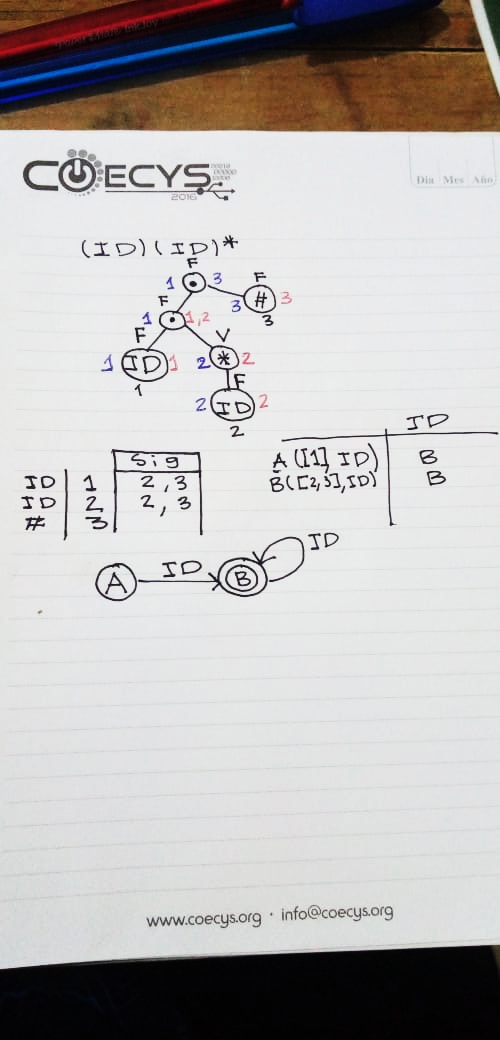 COECYS
2016
Dia Mes Año
(ID)(ID)*
F
1 • 3
F
3 # 3
3
F
1 • 1,2
F
1 ID 1
1
V
2 * 2
F
2 ID 2
2
Sig
ID 1 2,3
ID 2 2,3
# 3
ID
A([1], ID) B
B([2,3],ID) B
A ID B ID
www.coecys.org · info@coecys.org